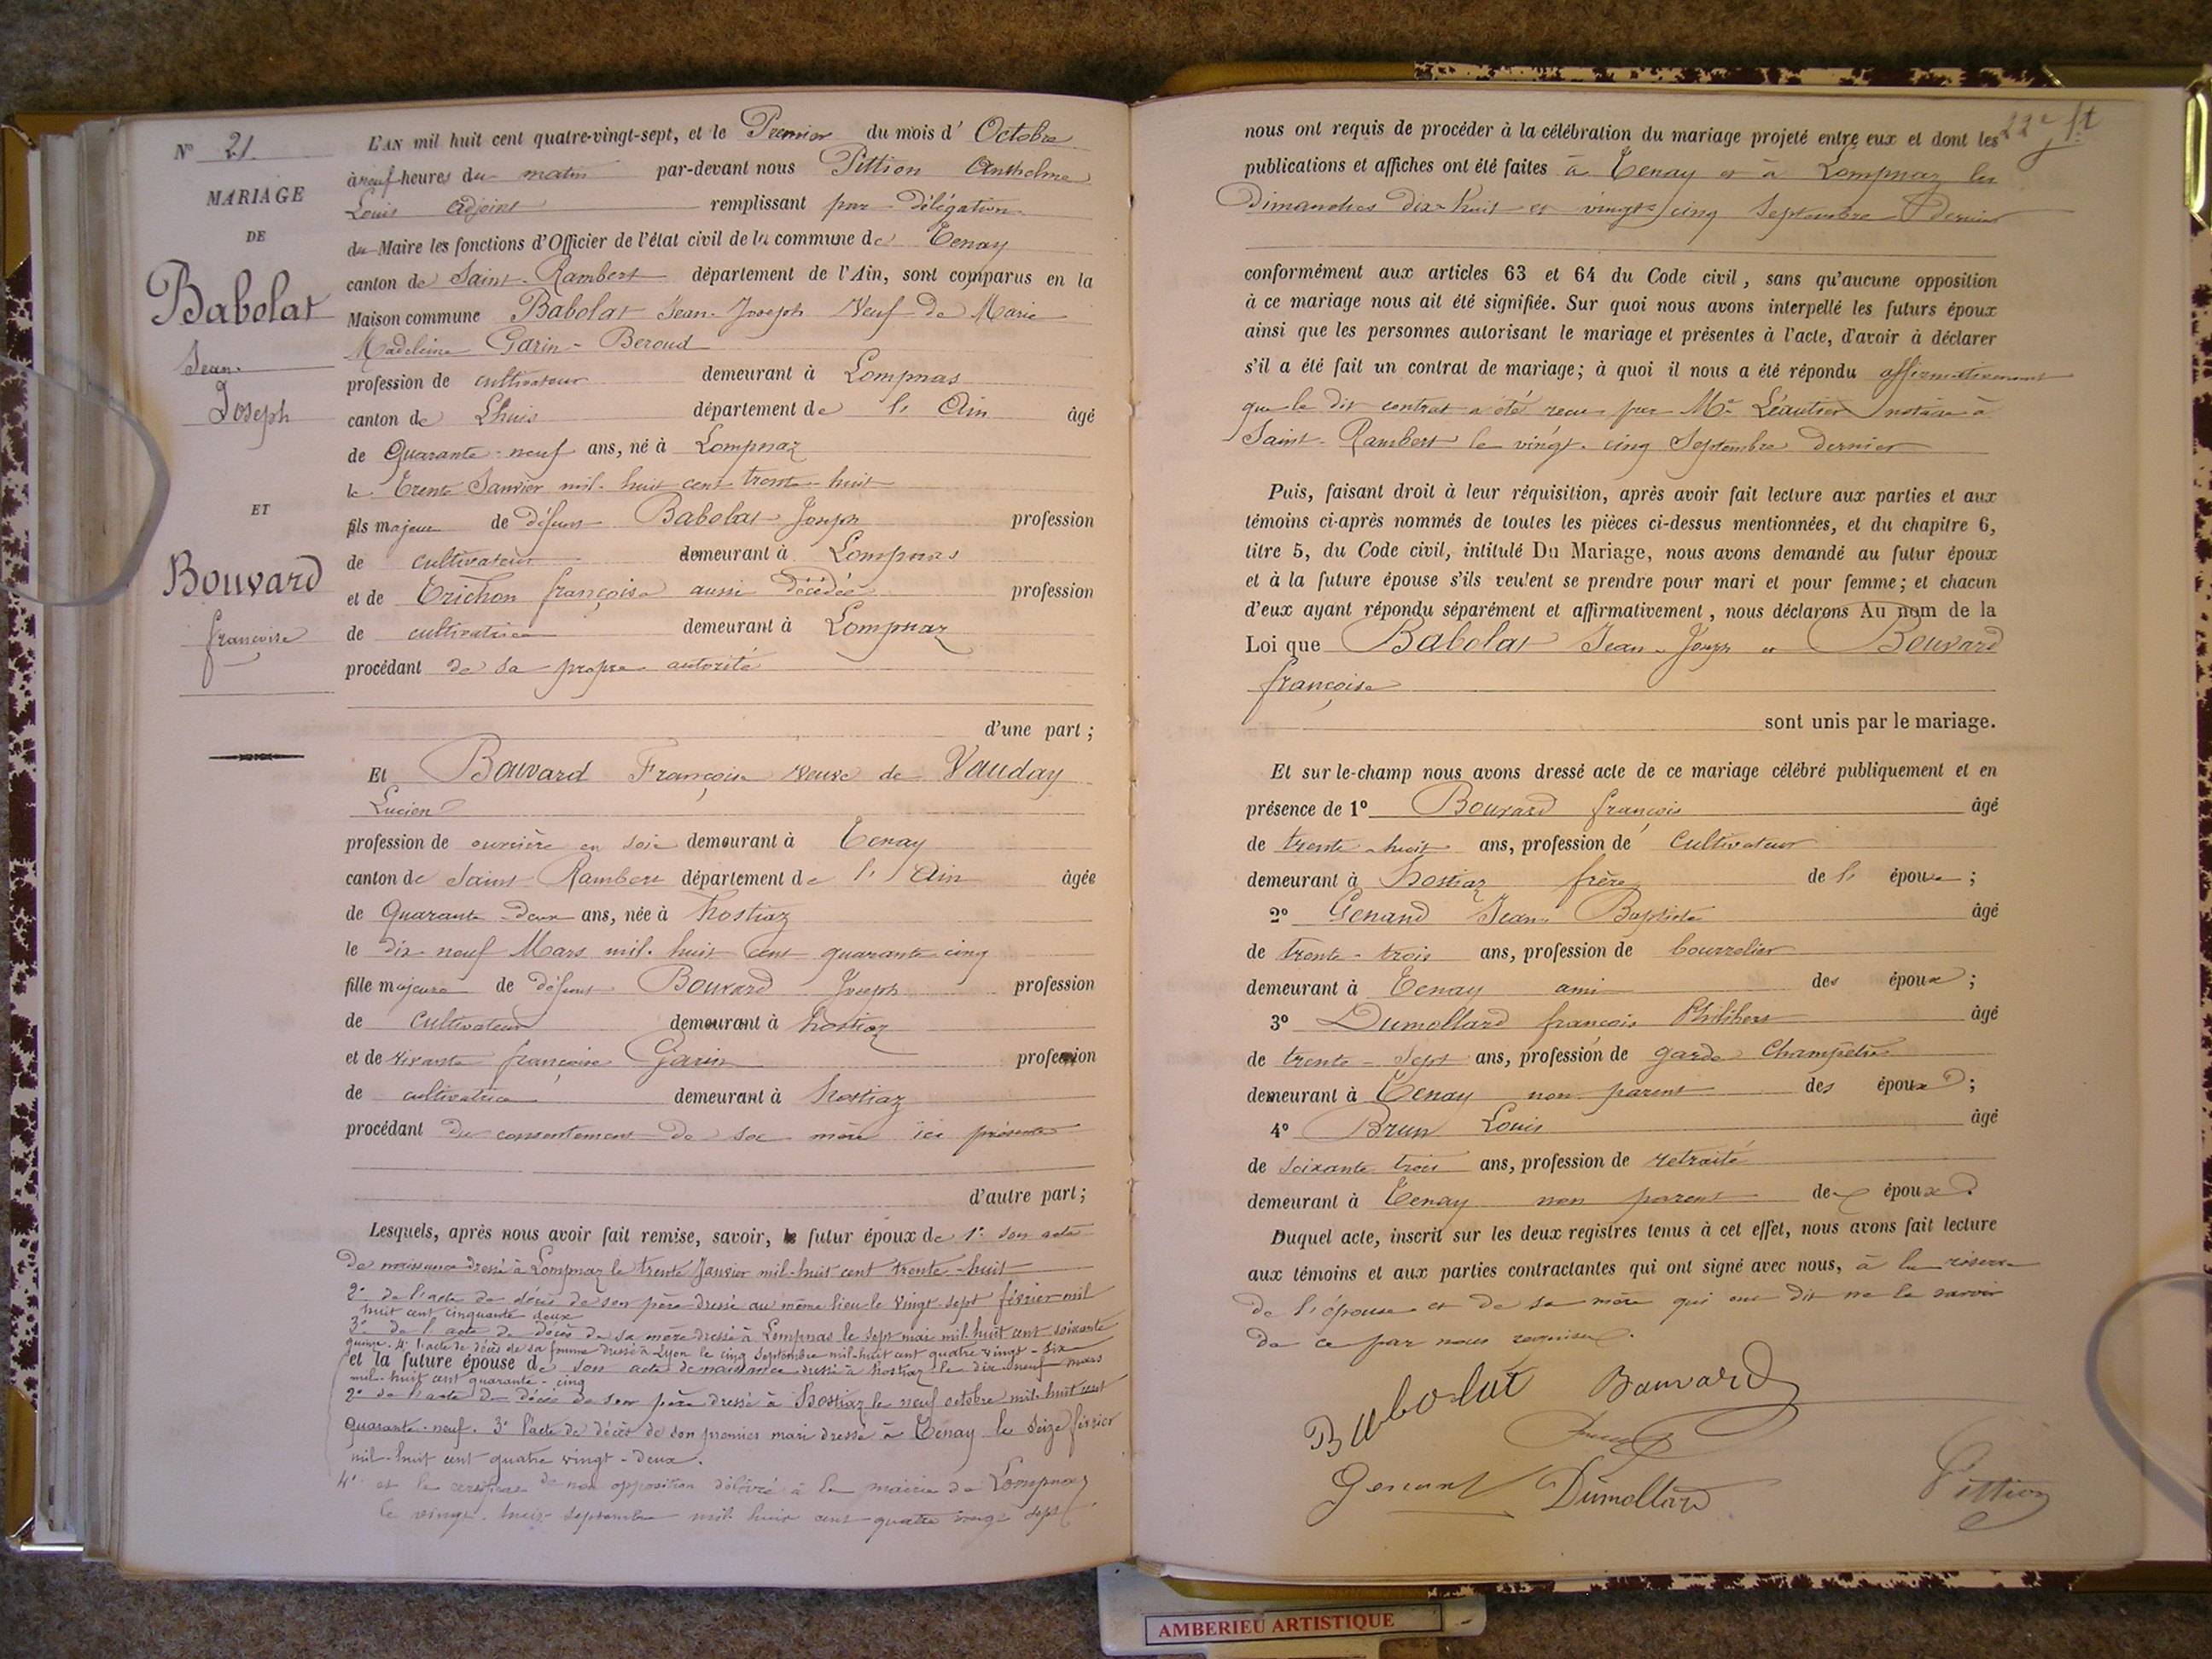 N° 21
MARIAGE
DE
Babolat
Jean
Joseph
ET
Bouvard
françoise
L'AN mil huit cent quatre-vingt-sept, et le Premier du mois d' Octobre
à neuf heures du matin par-devant nous Pittion Anthelme
Louis Adjoint remplissant par Délégation
du Maire les fonctions d'Officier de l'état civil de la commune de Tenay
canton de Saint-Rambert département de l'Ain, sont comparus en la
Maison commune Babolat Jean-Joseph Veuf de Marie
Madeleine Garin-Beroud
profession de cultivateur demeurant à Lompnas
canton de Lhuis département de l' Ain âgé
de Quarante-neuf ans, né à Lompnaz
le Trente Janvier mil-huit cent trente-huit
fils majeur de défunt Babolat Joseph profession
de cultivateur demeurant à Lompnas
et de Trichon françoise aussi décédée profession
de cultivatrice demeurant à Lompnaz
procédant de sa propre autorité
d'une part ;
Et Bouvard Françoise veuve de Vauday
Lucien
profession de ouvrière en soie demeurant à Tenay
canton de Saint Rambert département de l' Ain âgée
de Quarante-Deux ans, née à hostiaz
le dix-neuf Mars mil-huit cent quarante-cinq
fille majeure de défunt Bouvard Joseph profession
de cultivateur demeurant à hostiaz
et de vivante françoise Garin profession
de cultivatrice demeurant à hostiaz
procédant du consentement de sa mère ici présente
d'autre part ;
Lesquels, après nous avoir fait remise, savoir, le futur époux de 1° son acte
de naissance dressé à Lompnaz le trente Janvier mil-huit cent trente-huit
2° de l'acte de décès de son père dressé au même lieu le vingt-sept février mil
huit cent cinquante deux
3° de l'acte de décès de sa mère dressé à Lompnas le sept mai mil-huit cent soixante
quinze. 4° l'acte de décès de sa femme dressé à Lyon le cinq septembre mil-huit cent quatre vingt-six
et la future épouse de son acte de naissance dressé à hostiaz le dix-neuf mars
mil-huit cent quarante-cinq
2° de l'acte de décès de son père dressé à Hostiaz le neuf octobre mil-huit cent
quarante-neuf. 3° l'acte de décès de son premier mari dressé à Tenay le seize février
mil-huit cent quatre vingt-deux.
4° et le certificat de non opposition délivré à la mairie de Lompnaz
le vingt-huit septembre mil huit cent quatre vingt sept
22e
nous ont requis de procéder à la célébration du mariage projeté entre eux et dont les
publications et affiches ont été faites à Tenay et à Lompnaz les
Dimanches dix-huit et vingt-cinq Septembre Dernier
conformément aux articles 63 et 64 du Code civil, sans qu'aucune opposition
à ce mariage nous ait été signifiée. Sur quoi nous avons interpellé les futurs époux
ainsi que les personnes autorisant le mariage et présentes à l'acte, d'avoir à déclarer
s'il a été fait un contrat de mariage ; à quoi il nous a été répondu affirmativement
que le dit contrat a été reçu par Me Léautier notaire à
Saint-Rambert le vingt-cinq Septembre dernier
Puis, faisant droit à leur réquisition, après avoir fait lecture aux parties et aux
témoins ci-après nommés de toutes les pièces ci-dessus mentionnées, et du chapitre 6,
titre 5, du Code civil, intitulé Du Mariage, nous avons demandé au futur époux
et à la future épouse s'ils veulent se prendre pour mari et pour femme ; et chacun
d'eux ayant répondu séparément et affirmativement, nous déclarons Au nom de la
Loi que Babolat Jean-Joseph et Bouvard
françoise
sont unis par le mariage.
Et sur-le-champ nous avons dressé acte de ce mariage célébré publiquement et en
présence de 1° Bouvard françois âgé
de trente-huit ans, profession de Cultivateur
demeurant à Hostiaz frère de l' épouse ;
2° Genand Jean Baptiste âgé
de trente-trois ans, profession de bourrelier
demeurant à Tenay ami des époux ;
3° Dumollard françois Philibert âgé
de trente-sept ans, profession de garde Champêtre
demeurant à Tenay non parent des époux ;
4° Brun Louis âgé
de soixante trois ans, profession de retraité
demeurant à Tenay non parent des époux.
Duquel acte, inscrit sur les deux registres tenus à cet effet, nous avons fait lecture
aux témoins et aux parties contractantes qui ont signé avec nous, à la réserve
de l'épouse et de sa mère qui ont dit ne le savoir
de ce par nous requises.
Babolat Bouvard
Brun
Genand Dumollard Pittion
AMBERIEU ARTISTIQUE